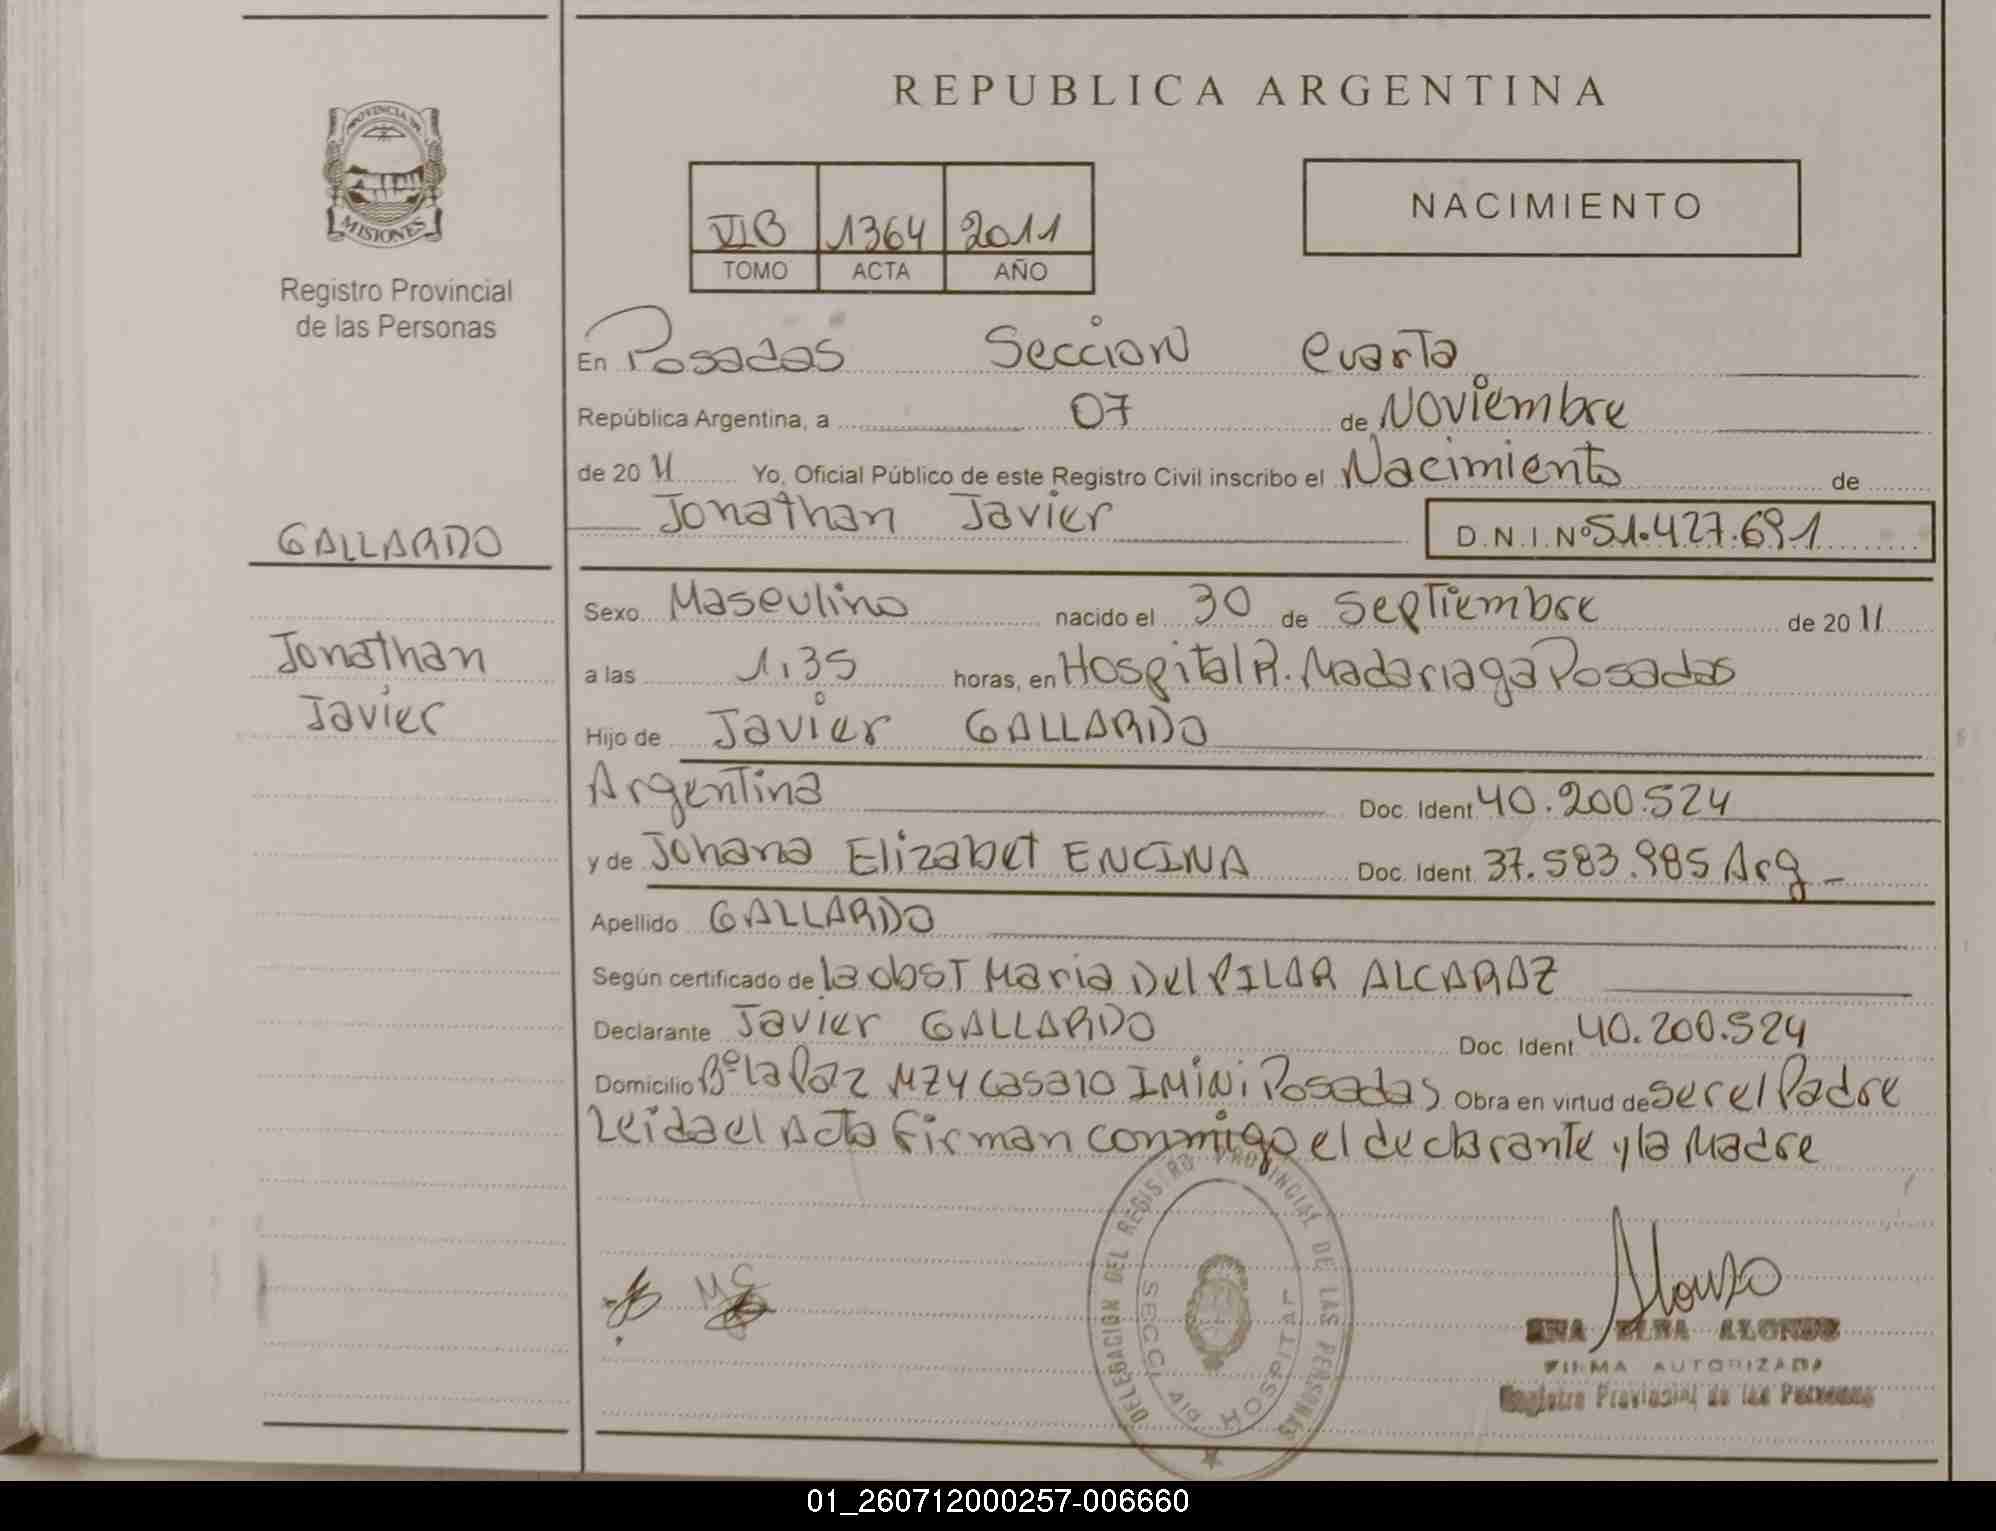 REPUBLICA ARGENTINA
PROVINCIA DE
MISIONES
Registro Provincial
de las Personas
NACIMIENTO
VIB 1364 2011
TOMO ACTA AÑO
En Posadas Seccion Cuarta
República Argentina, a 07 de Noviembre
de 2011 Yo, Oficial Público de este Registro Civil inscribo el Nacimiento de
Jonathan Javier D.N.I. Nº 51.427.691
GALLARDO
Jonathan
Javier
Sexo Masculino nacido el 30 de Septiembre de 2011
a las 1,35 horas, en Hospital R. Madariaga Posadas
Hijo de Javier GALLARDO
Argentina Doc. Ident 40.200.524
y de Johana Elizabet ENCINA Doc. Ident. 37.583.985 Arg
Apellido GALLARDO
Según certificado de la obst Maria Del PILAR ALCARAZ
Declarante Javier GALLARDO Doc. Ident. 40.200.524
Domicilio Bº La Paz MZ4 Casa10 IMiNi Posadas Obra en virtud de ser el Padre
Leida el Acta firman conmigo el declarante y la Madre
DELEGACION DEL REGISTRO PROVINCIAL DE LAS PERSONAS
HOSPITAL
Alonso
ANA ELBA ALONSO
FIRMA AUTORIZADA
Registro Provincial de las Personas
01_260712000257-006660